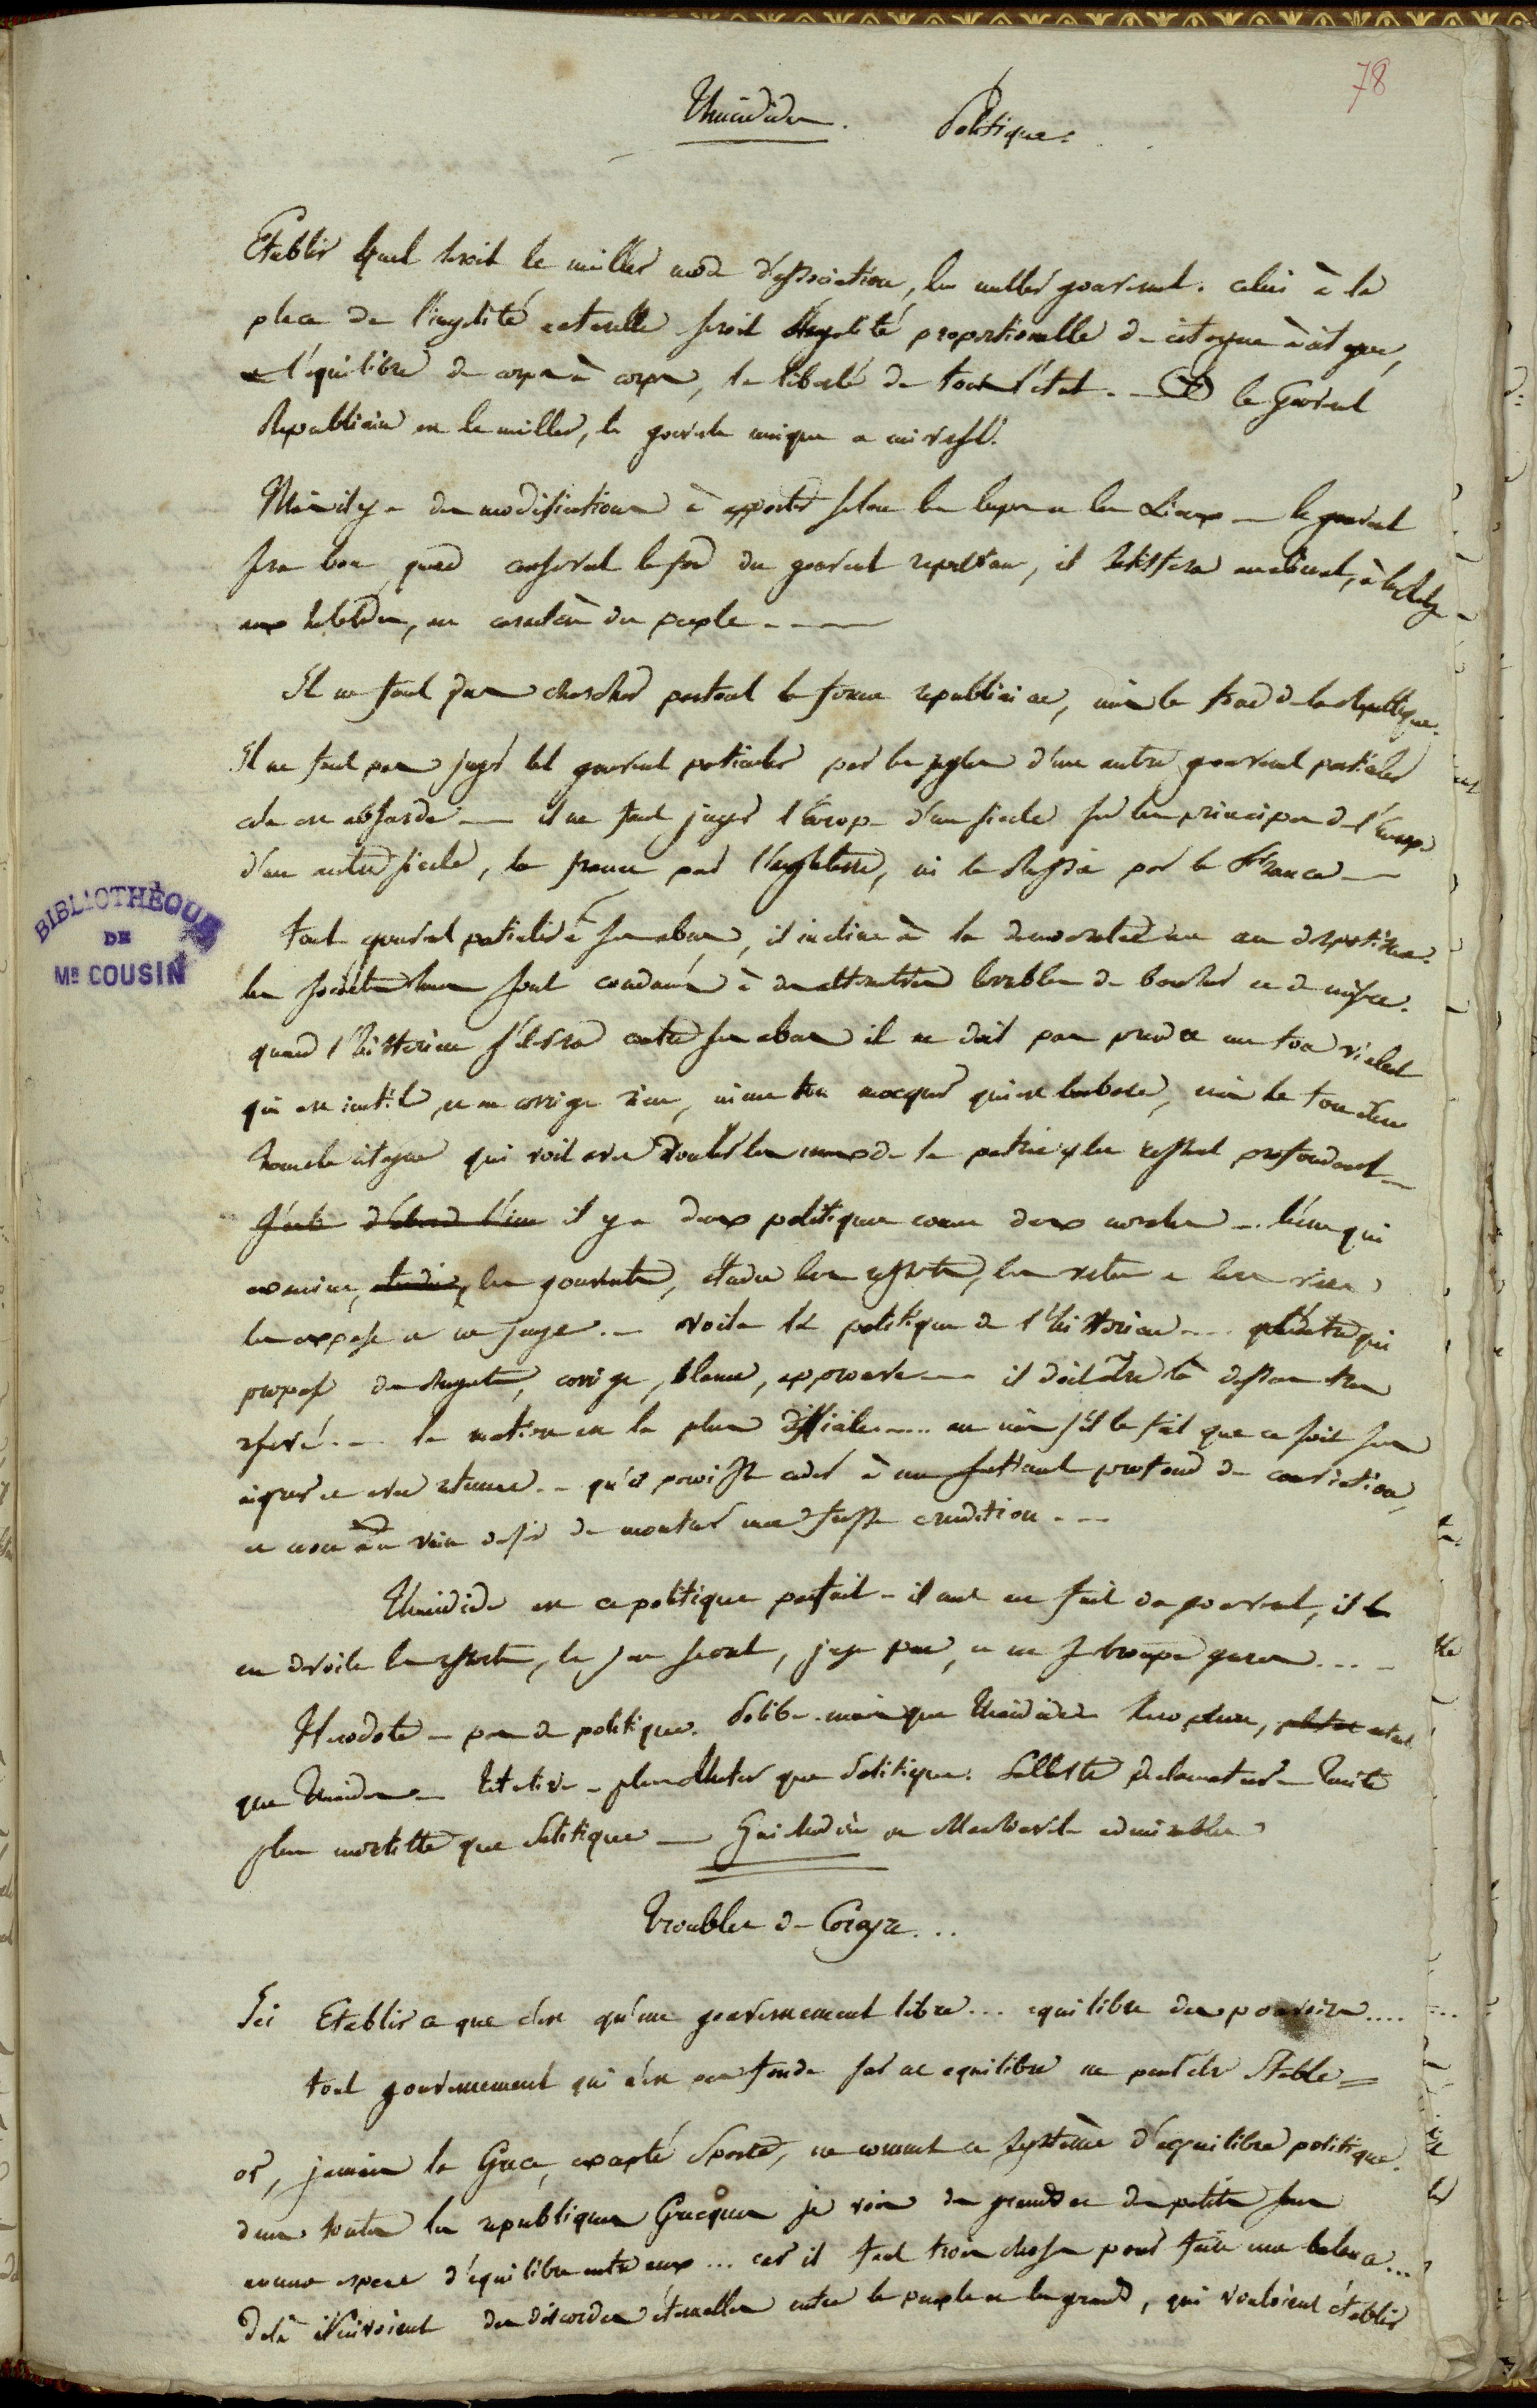 78
Thucidide. Politique.
Etablir quel seroit le meiller mode d'association, le meiller gouvernmt. celui à la
place de l'inegalité naturelle seroit l'egalité proportionelle de citoyen à citoyen,
l'equilibre de corps à corps, la liberté de tout l'état. — le Gouvernt
Republicain est le meiller, le gouvernt unique et universel.
Mais il y a des modifications à apporter selon les temps et les Lieux — le gouvernt
sera bon quand conservant le fond du gouvernt republicain, il
aux habitudes, au caractère du peuple - - - -
Il ne faut pas chercher partout la forme republicaine, mais le fond de la Republique.
Il ne faut pas juger tel gouvernt particuler par les regles d'un autre gouvernt particuler
cela est absurde — il ne faut juger l'Europe d'un siecle sur les principes de l'Europe
d'un autre siecle, la france par l'angleterre, ni la Russie par la France —
BIBLIOTHÈQUE
DE
Mr COUSIN
tout gouvernt particulier a ses abus, il incline à la democratie ou au despotisme.
les sont condamnés à des de bonheur et de misere.
quand l'historien s'elevera contre ses abus il ne doit pas prendre un ton violent
qui est inutile, et ne corrige rien, ni un ton moqueur qui est barbare, mais le ton d'un
honnete citoyen qui voit avec douleur les maux de la patrie et les ressent profondement —
il y a deux politiques comme deux morales — l'une qui
examine, les gouvernts, etudie leurs ressorts, leurs vertus et leurs vices
les expose et les juge. — voila la politique de l'historien - - - l'autre qui
propose des , corrige, blame, approuve — il doit être là dessus tres
reservé. — la matiere est la plus difficile .... ou mais s'il le fait que ce soit sans
aigreur et avec retenue. — qu'il paroisse ceder à un sentiment profond de conviction,
et non au vain desir de montrer une fausse erudition - - -
Thucidide est ce politique parfait — il un fait de gouvernt, il
en devoile les ressorts, le jeu secret, juge peu, et ne se trompe gueres - - - -
Herodote — peu de politique. Polibe. moins que Thucidide Xenophon,
que Thucidide — Tite-live — plus Orateur que Politique. Salluste declamateur — Tacite
plus moraliste que Politique — Guichardin et Machiavel admirables
Troubles de Corcyre...
Ici Etablir ce que c'est qu'un gouvernement libre... equilibre des pouvoirs....
tout gouvernement qui n'est pas fondé sur cet equilibre ne peut etre Stable =
or, jamais la Grece, excepté Sparte, ne connut ce système d'equilibre politique.
dans toutes les republiques Grecques je vois des grands et des petits sans
aucune espece d'equilibre entre eux... car il faut trois choses pour faire une balance...
delà des discordes éternelles entre le peuple et les grands, qui vouloient établir